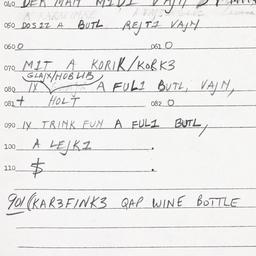 040 DER MAN MIDI VAJN
050 DOSIZ A BUTL. REJTI VAJN
060 O 061 O
070 MIT A KORIK/KORK3
GLAJX/HOBLIB
080 IX A FULI BUTL, VAJN,
081 + HOLT 082 O
090 IX TRINK FUN A FULI BUTL,
100 A LEJKI .
110 $ .
901 (KAR3FINK3 QAP WINE BOTTLE